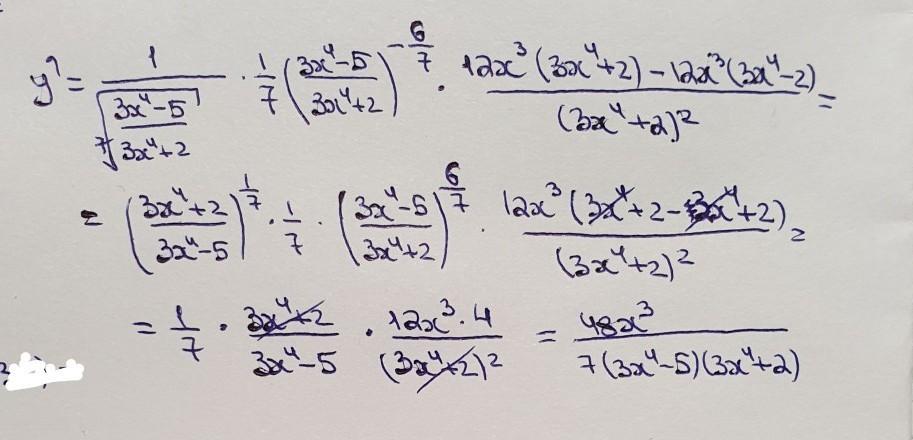 y' = \frac{1}{\sqrt[7]{\frac{3x^4-5}{3x^4+2}}} \cdot \frac{1}{7} \left(\frac{3x^4-5}{3x^4+2}\right)^{-\frac{6}{7}} \cdot \frac{12x^3(3x^4+2)-12x^3(3x^4-2)}{(3x^4+2)^2} =
= \left(\frac{3x^4+2}{3x^4-5}\right)^{\frac{1}{7}} \cdot \frac{1}{7} \cdot \left(\frac{3x^4-5}{3x^4+2}\right)^{\frac{6}{7}} \cdot \frac{12x^3(3x^4+2-3x^4+2)}{(3x^4+2)^2} =
= \frac{1}{7} \cdot \frac{3x^4+2}{3x^4-5} \cdot \frac{12x^3 \cdot 4}{(3x^4+2)^2} = \frac{48x^3}{7(3x^4-5)(3x^4+2)}